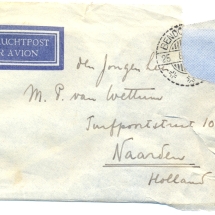 LUCHTPOST
R AVION
den Jongen he
M. P. van Wettum
Turfpoortstreet 10
Naarden
Holland